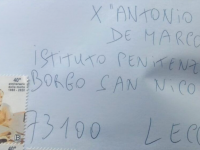 X "ANTONIO
DE MARCO
ISTITUTO PENITENZ
BORGO SAN NICO
73100 LECC